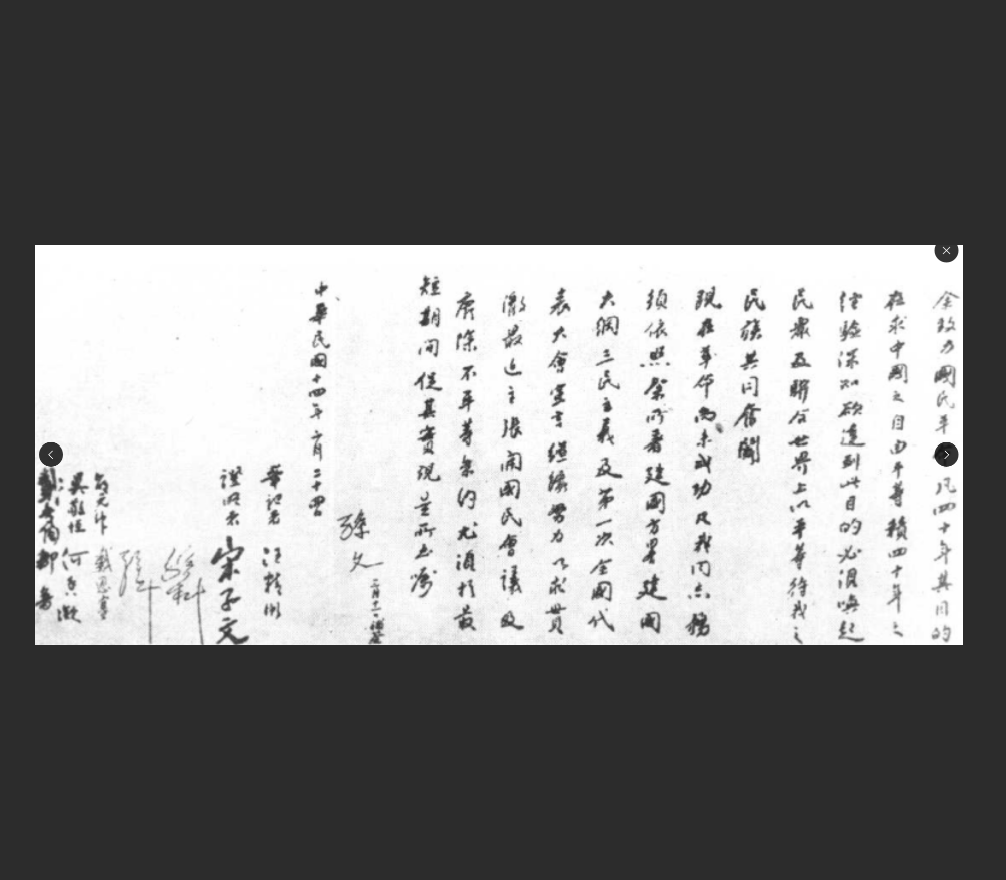 余致力國民革　凡四十年其目的
在求中國之自由平等積四十年之
經驗深知欲達到此目的必須喚起
民眾及聯合世界上以平等待我之
民族共同奮鬭
現在革命尚未成功凡我同志務
須依照余所著建國方畧建國
大綱三民主義及第一次全國代
表大會宣言繼續努力以求貫
徹最近主張開國民會議及
廢除不平等条約尤須於最
短期間促其實現是所至囑
孫文 三月十一日補簽
中華民國十四年二月二十四日
筆記者 汪精衛
證明者 宋子文
孫科
戴恩賽
吳敬恒 何香凝
鄒魯